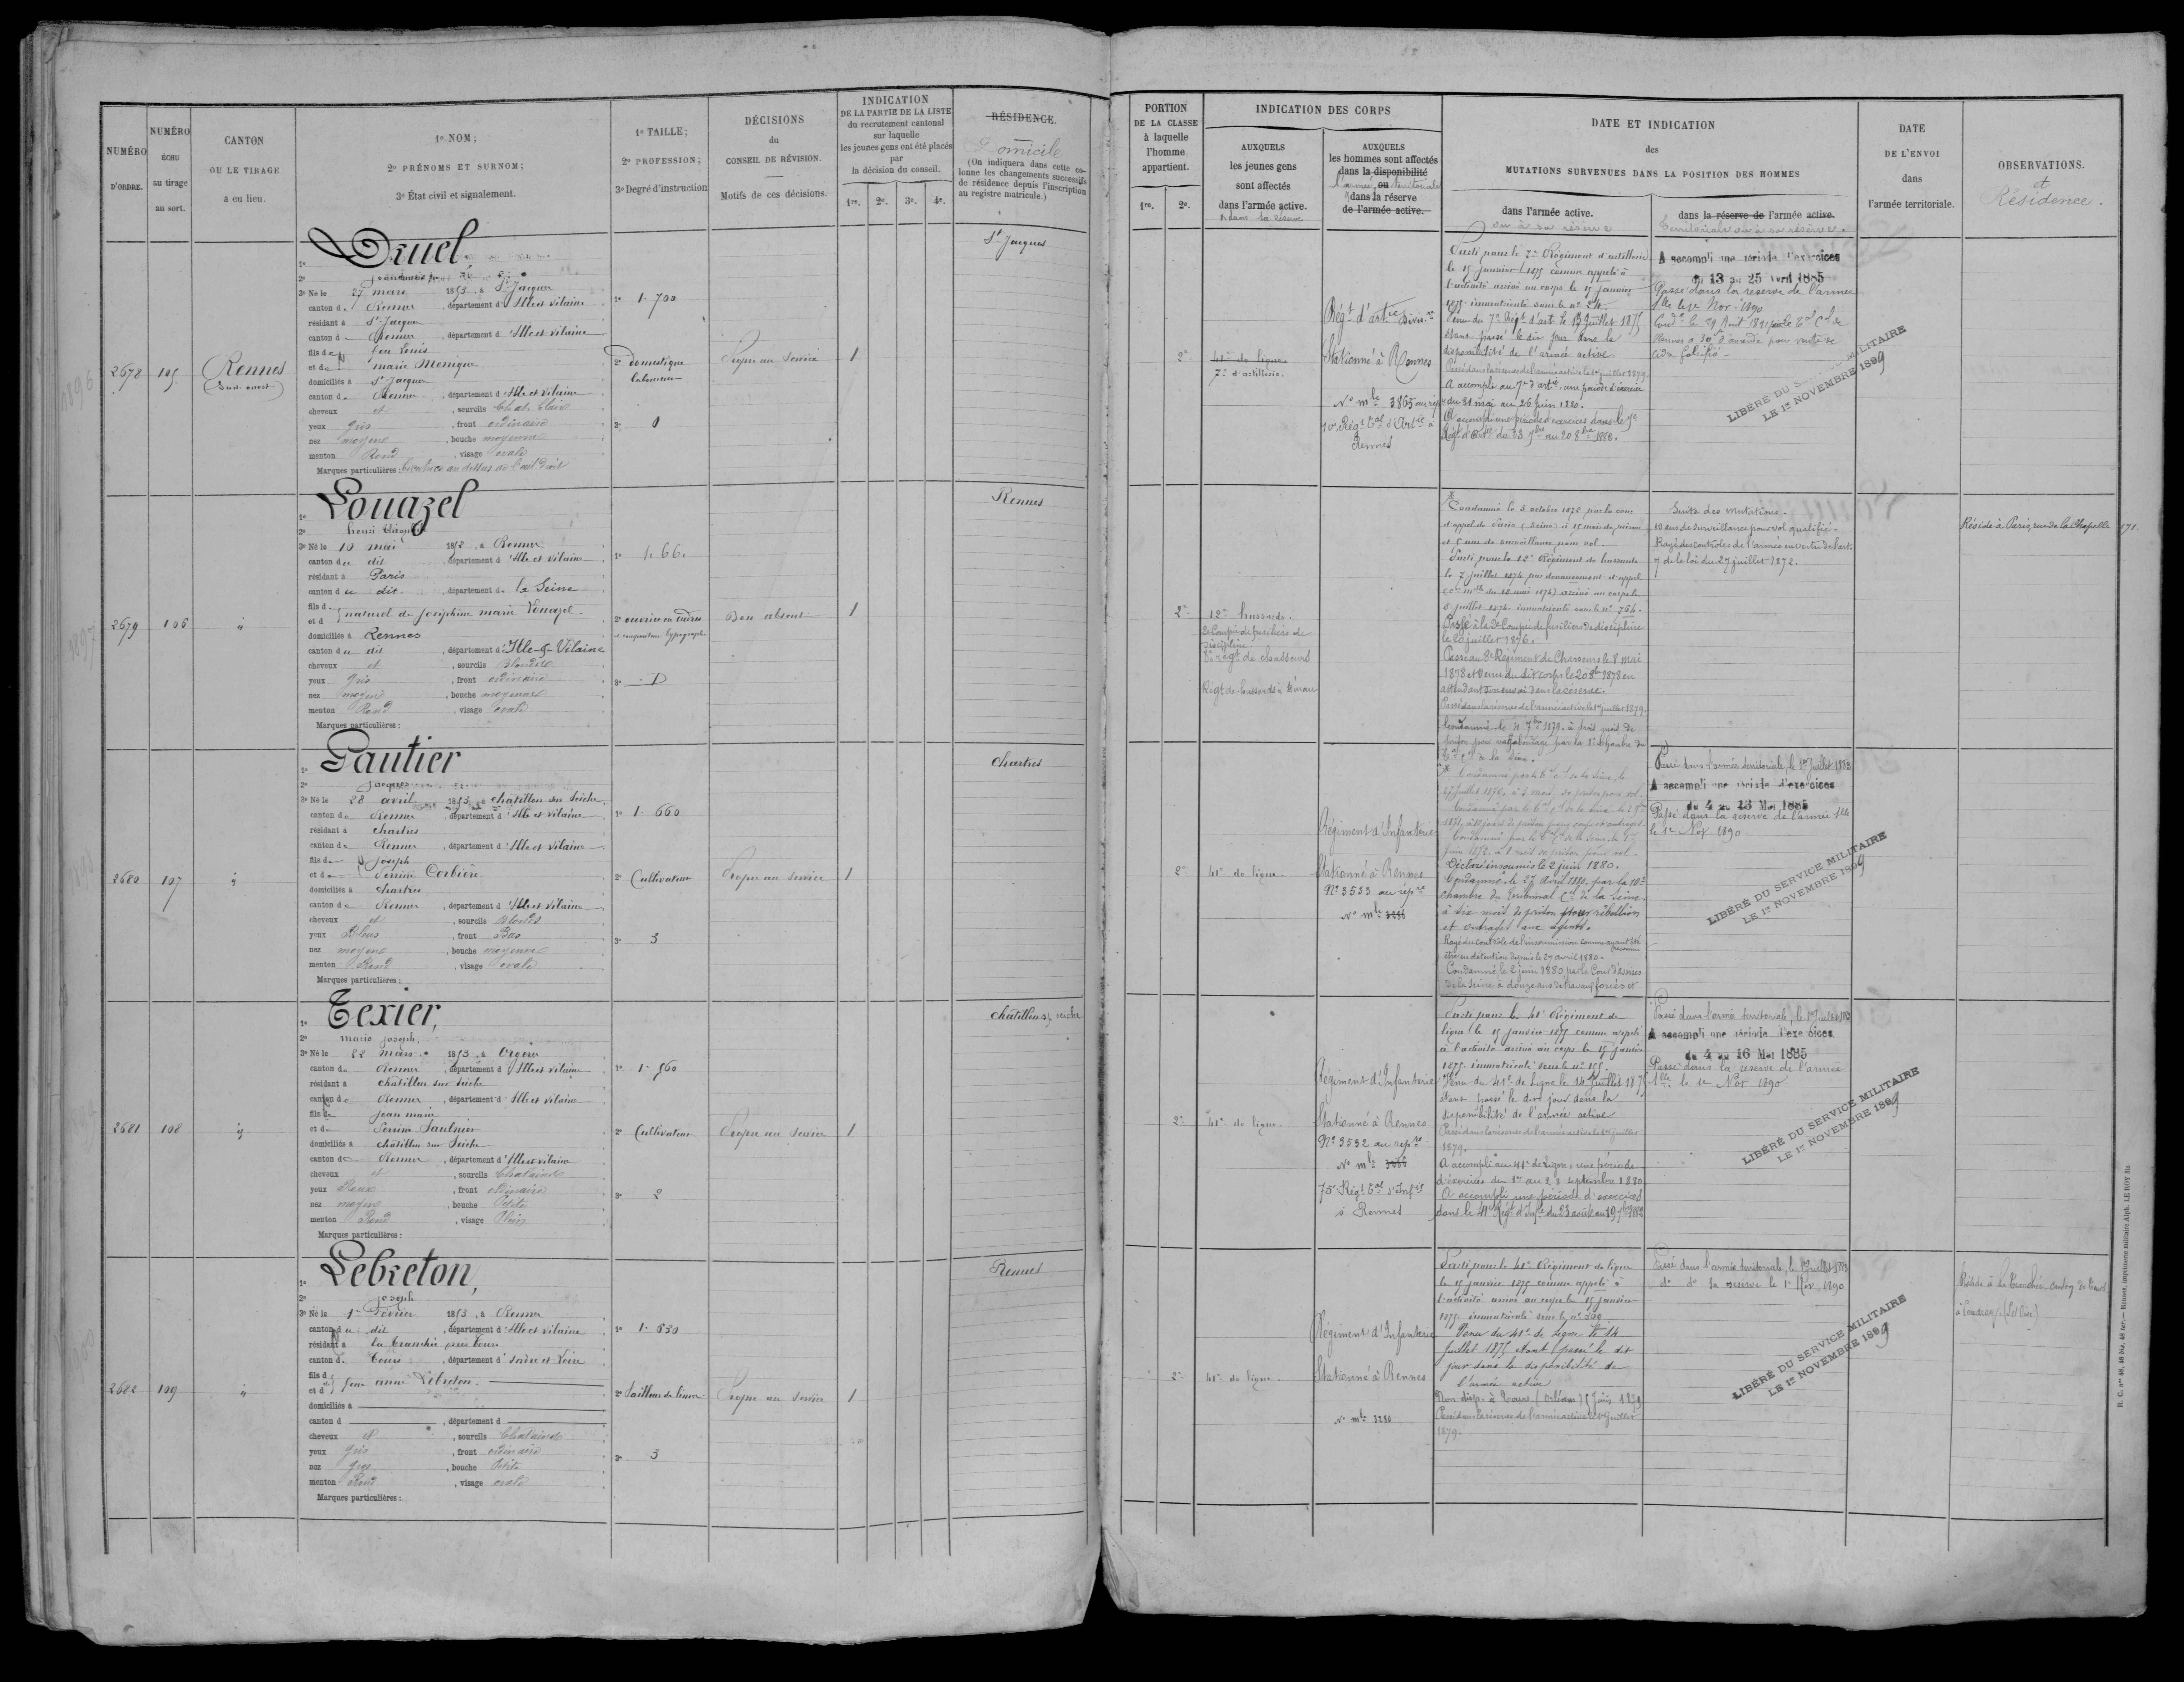 NUMÉRO D'ORDRE.
NUMÉRO échu au tirage au sort.
CANTON OU LE TIRAGE a eu lieu.
1º NOM;
2º PRÉNOMS ET SURNOM;
3º État civil et signalement.
1º TAILLE;
2º PROFESSION;
3º Degré d'instruction
DÉCISIONS du CONSEIL DE RÉVISION.
Motifs de ces décisions.
INDICATION
DE LA PARTIE DE LA LISTE
du recrutement cantonal
sur laquelle
les jeunes gens ont été placés
par
la décision du conseil.
1re. 2e. 3e. 4e.
RÉSIDENCE.
Domicile
(On indiquera dans cette co-
lonne les changements successifs
de résidence depuis l'inscription
au registre matricule.)
PORTION
DE LA CLASSE
à laquelle
l'homme
appartient.
1re. 2e.
INDICATION DES CORPS
AUXQUELS
les jeunes gens
sont affectés
dans l'armée active.
& dans la réserve
AUXQUELS
les hommes sont affectés
dans la disponibilité
l'armée ou territoriale
dans la réserve
de l'armée active.
DATE ET INDICATION
des
MUTATIONS SURVENUES DANS LA POSITION DES HOMMES
dans l'armée active.
ou à sa réserve
dans la réserve de l'armée active.
territoriale ou à sa réserve.
DATE
DE L'ENVOI
dans
l'armée territoriale.
OBSERVATIONS.
et
Résidence.
2678
105
Rennes
(Sud-ouest)
1º Druel
3º Né le 27 mars 1853, à St Jacques
canton de Rennes, département d'Ille et Vilaine
résidant à St Jacques
canton de Rennes, département d'Ille et Vilaine
fils de feu Louis
et de Marie Monique
domiciliés à St Jacques
canton de Rennes, département d'Ille et Vilaine
cheveux et, sourcils Chat. Clair
yeux gris, front ordinaire
nez moyen, bouche moyenne
menton Rond, visage ovale
Marques particulières: Cicatrice au dessus de l'œil droit
1º 1.700
2º domestique
laboureur
3º 0
Propre au Service
1
St Jacques
2e
41e de ligne
7e d'artillerie.
Régt d'artie Divisre
Stationné à Rennes
Nº mle 3865 au répre
10e Régt Tal d'Artie à
Rennes
Parti pour le 7e Régiment d'artillerie
le 15 janvier 1875 comme appelé à
l'activité arrivé au corps le 15 janvier
1875 immatriculé sous le nº 24.
Venu du 7e Régt d'art. le 13 Juillet 1875
étant passé le dix jour dans la
disponibilité de l'armée active
Passé dans la réserve de l'armée active le 1er juillet 1879.
A accompli au 7e d'artie une période d'exercice
du 31 mai au 26 juin 1880.
A accompli une période d'exercices dans le 7e
Régt d'artie du 23 7bre au 20 8bre 1882.
A accompli une période d'exercices
du 13 au 25 Avril 1885
Passé dans la réserve de l'armée
tlle le 1e Nov. 1890
LIBÉRÉ DU SERVICE MILITAIRE
LE 1er NOVEMBRE 1899
2679
106
"
1º Louazel
3º Né le 10 mai 1853, à Rennes
canton du dit, département d'Ille et Vilaine
résidant à Paris
canton du dit, département de la Seine
fils d naturel de Joséphine Marie Louazel
domiciliés à Rennes
canton du dit, département d'Ille-&-Vilaine
cheveux et, sourcils Blonds
yeux gris, front ordinaire
nez moyen, bouche moyenne
menton Rond, visage ovale
Marques particulières:
1º 1.66.
2º ouvrier en cadres
et compositeur typographe
3º D
Bon absent
1
Rennes
2e
12e hussards.
2e Compie de fusiliers de
discipline.
8e régt de chasseurs
Régt de hussards à Dinan
Condamné le 3 octobre 1872 par la cour
d'appel de Paris (Seine) à 15 mois de prison
et 5 ans de surveillance pour vol.
Parti pour le 12e Régiment de hussards
le 7 juillet 1874 par devancement d'appel
immatriculé sous le nº 764.
Passé à la 2e Compie de fusiliers de discipline
le 20 juillet 1876.
Passé au 8e Régiment de Chasseurs le 8 mai
1878 et Venu du dit corps le 20 8bre 1878 en
attendant son envoi dans la réserve.
Passé dans la réserve de l'armée active le 1er juillet 1879.
Condamné le 4 7bre 1879 à trois mois de
prison pour vagabondage par la 8e Chambre du
Tal Cel de la Seine.
Suite des mutations.
10 ans de surveillance pour vol qualifié.
Rayé des contrôles de l'armée en vertu de l'art.
7 de la loi du 27 juillet 1872.
Réside à Paris, rue de la Chapelle 171.
2680
107
"
1º Gautier
2º Jacques
3º Né le 28 avril 1853, à Châtillon sur Seiche
canton de Rennes, département d'Ille et Vilaine
résidant à Chartres
canton de Rennes, département d'Ille et Vilaine
fils de Joseph
et de Perrine Corbière
domiciliés à Chartres
canton de Rennes, département d'Ille et Vilaine
cheveux et, sourcils Blonds
yeux Bleus, front Bas
nez moyen, bouche moyenne
menton Rond, visage ovale
Marques particulières:
1º 1.660
2º Cultivateur
3º 3
Propre au Service
1
Chartres
2e
41e de ligne
Régiment d'Infanterie
Stationné à Rennes
Nº 3533 au répre
Nº mle 3288
Condamné par le Tal Cel de la Seine, le
27 juillet 1870, à 3 mois de prison pour vol.
Déclaré insoumis le 2 juin 1880.
Condamné le 27 Avril 1880, par la 10e
chambre du Tribunal Cel de la Seine
à six mois de prison pour rébellion
et outrages aux agents.
Rayé du contrôle de l'insoumission comme ayant été
être en détention depuis le 27 avril 1880.
Condamné le 2 juin 1880 par la Cour d'Assises
de la Seine à douze ans de travaux forcés et
Passé dans l'armée territoriale, le 1er Juillet 1883
A accompli une période d'exercices
du 4 au 16 Mai 1885
Passé dans la réserve de l'armée tlle
le 1e Nov. 1890
LIBÉRÉ DU SERVICE MILITAIRE
LE 1er NOVEMBRE 1899
2681
108
"
1º Texier,
2º Marie Joseph,
3º Né le 22 mars 1853, à Orgères
canton de Rennes, département d'Ille et Vilaine
résidant à Châtillon sur Seiche
canton de Rennes, département d'Ille et Vilaine
fils de Jean Marie
et de Perrine Saulnier
domiciliés à Châtillon sur Seiche
canton de Rennes, département d'Ille et Vilaine
cheveux et, sourcils Châtains
yeux Roux, front ordinaire
nez moyen, bouche Petite
menton Rond, visage Plein
Marques particulières:
1º 1.560
2º Cultivateur
3º 2
Propre au Service
1
Châtillon s/ Seiche
2e
41e de ligne.
Régiment d'Infanterie
Stationné à Rennes
Nº 3532 au repre
Nº mle 3286
75e Régt Tal d'Infie
à Rennes
Parti pour le 41e Régiment de
ligne le 15 janvier 1875 comme appelé
à l'activité arrivé au corps le 15 janvier
1875 immatriculé sous le nº 155.
Venu du 41e de Ligne le 14 Juillet 1875
étant passé le dit jour dans la
disponibilité de l'armée active
Passé dans la réserve de l'armée active le 1er juillet
1879.
A accompli au 41e de Ligne, une période
d'exercices du 1er au 28 septembre 1880
A accompli une période d'exercices
dans le 41e Régt d'Infie du 23 août au 19 7bre 1882
Passé dans l'armée territoriale, le 1er Juillet 1883
A accompli une période d'exercices
du 4 au 16 Mai 1885
Passé dans la réserve de l'armée
tlle le 1e Nov 1890
LIBÉRÉ DU SERVICE MILITAIRE
LE 1er NOVEMBRE 1899
2682
109
"
1º Lebreton,
2º Joseph
3º Né le 1er Février 1853, à Rennes
canton du dit, département d'Ille et Vilaine
résidant à la Tranchée près Tours
canton de Tours, département d'Indre et Loire
fils de feue Anne Lebreton.
domiciliés à
canton d, département d
cheveux et, sourcils Châtains
yeux gris, front ordinaire
nez gros, bouche Petite
menton Rond, visage ovale
Marques particulières:
1º 1.630
2º Tailleur de limes
3º 3
Propre au Service
1
Rennes
2e
41e de ligne.
Régiment d'Infanterie
Stationné à Rennes
Nº mle 3280
Parti pour le 41e Régiment de ligne
le 15 janvier 1875 comme appelé à
l'activité arrivé au corps le 15 janvier
1875 immatriculé sous le nº 309
Venu du 41e de Ligne le 14
Juillet 1875 étant passé le dit
jour dans la disponibilité de
l'armée active
Passé dans la réserve de l'armée active le 1er Juillet
1879.
Passé dans l'armée territoriale, le 1er Juillet 1883
do do la réserve le 1e Nov. 1890
LIBÉRÉ DU SERVICE MILITAIRE
LE 1er NOVEMBRE 1899
Réside à la Tranchée, canton de Tours
R. C. nos 48, 48 bis, 48 ter. — Rennes, imprimerie militaire Alph. LE ROY fils
1896
1897